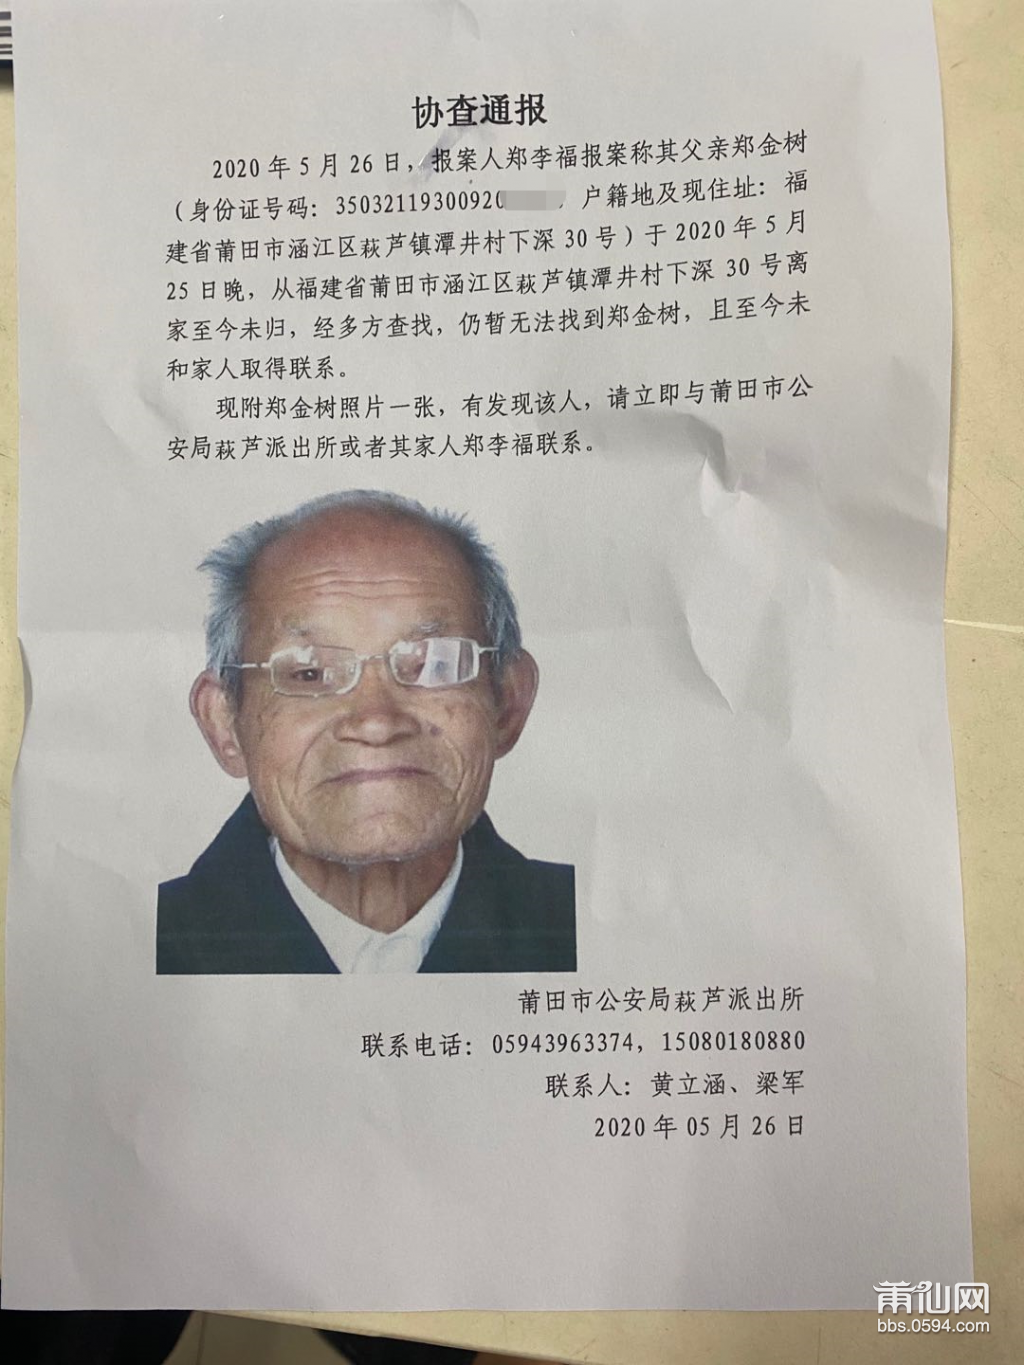 协查通报
2020 年 5 月 26 日，报案人郑李福报案称其父亲郑金树
（身份证号码：35032119300920 户籍地及现住址：福
建省莆田市涵江区萩芦镇潭井村下深 30 号）于 2020 年 5 月
25 日晚，从福建省莆田市涵江区萩芦镇潭井村下深 30 号离
家至今未归，经多方查找，仍暂无法找到郑金树，且至今未
和家人取得联系。
现附郑金树照片一张，有发现该人，请立即与莆田市公
安局萩芦派出所或者其家人郑李福联系。
莆田市公安局萩芦派出所
联系电话：05943963374，15080180880
联系人：黄立涵、梁军
2020 年 05 月 26 日
莆仙网
bbs.0594.com